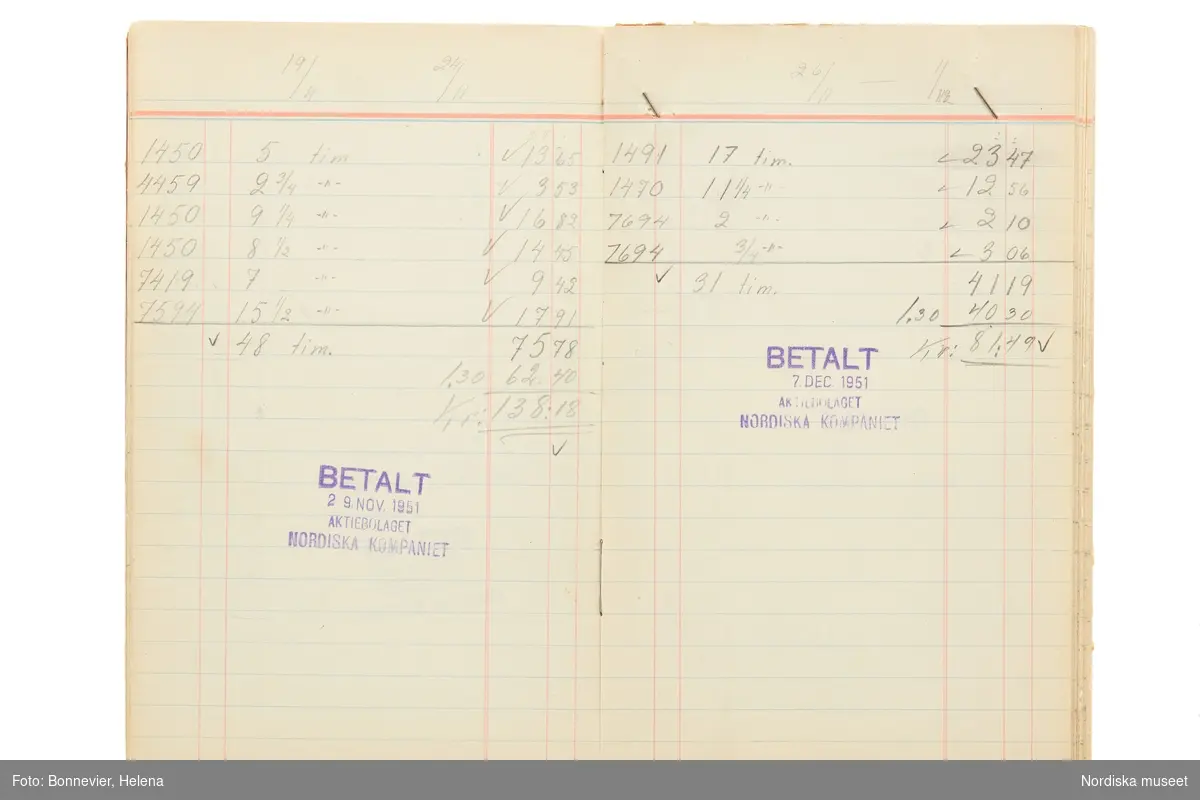 19/11 24/11
1450 5 tim ✓ 13 65
4459 2 3/4 -"- ✓ 3 53
1450 9 1/4 -"- ✓ 16 82
1450 8 1/2 -"- ✓ 14 45
7419 7 -"- ✓ 9 42
7594 15 1/2 -"- ✓ 17 91
✓ 48 tim. 75 78
1.30 62.40
Kr: 138:18
✓
BETALT
29. NOV. 1951
AKTIEBOLAGET
NORDISKA KOMPANIET
26/11 — 1/12
1491 17 tim. ✓ 23 47
1470 11 1/4 -"- ✓ 12 56
7694 2 -"- ✓ 2 10
7694 3/4 -"- ✓ 3 06
✓ 31 tim. 41 19
1.30 40 30
Kr: 81:49 ✓
BETALT
7. DEC. 1951
AKTIEBOLAGET
NORDISKA KOMPANIET
Foto: Bonnevier, Helena
Nordiska museet